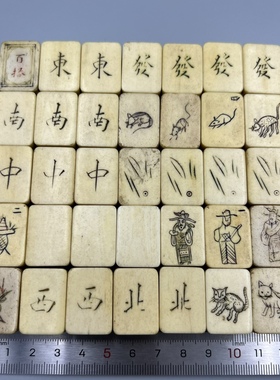 百搭 東 東 發 發 發 發
南 南 南
中 中 中
二 一
西 西 北 北
1 2 3 4 5 6 7 8 9 10 11